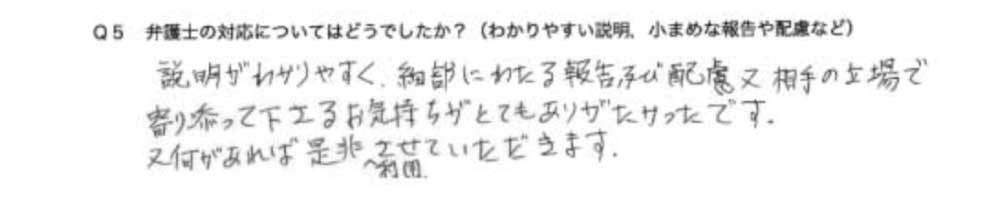 Q5 弁護士の対応についてはどうでしたか？（わかりやすい説明，小まめな報告や配慮など）
説明がわかりやすく、細部にわたる報告及び配慮又相手の立場で
寄り添って下さるお気持ちがとてもありがたかったです。
又何があれば是非利用させていただきます。